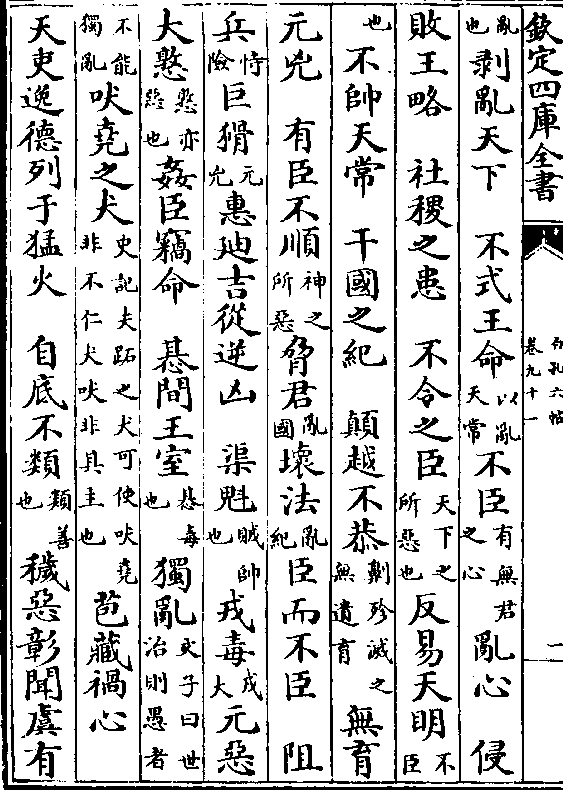 欽定四庫全書
白孔六帖
卷九十一
二
亂也剥亂天下　不式王命以亂天常不臣有無君之心亂心　侵
敗王略　社稷之患　不令之臣天下之所惡也反易天明不臣
也不帥天常　干國之紀　顛越不恭劓殄滅之無遺育無育
元兇　有臣不順神之所惡脅君亂國壞法亂紀臣而不臣　阻
兵恃險巨猾元兇惠廸吉從逆凶　渠魁賊帥也戎毒戎大元惡
大憝憝亦惡也姦臣竊命　惎間王室惎毒也獨亂文子曰世治則愚者
不能獨亂吠堯之犬史記夫跖之犬可使吠堯非不仁犬吠非具主也苞藏禍心
天吏逸德列于猛火　自底不類類善也穢惡彰聞虞有